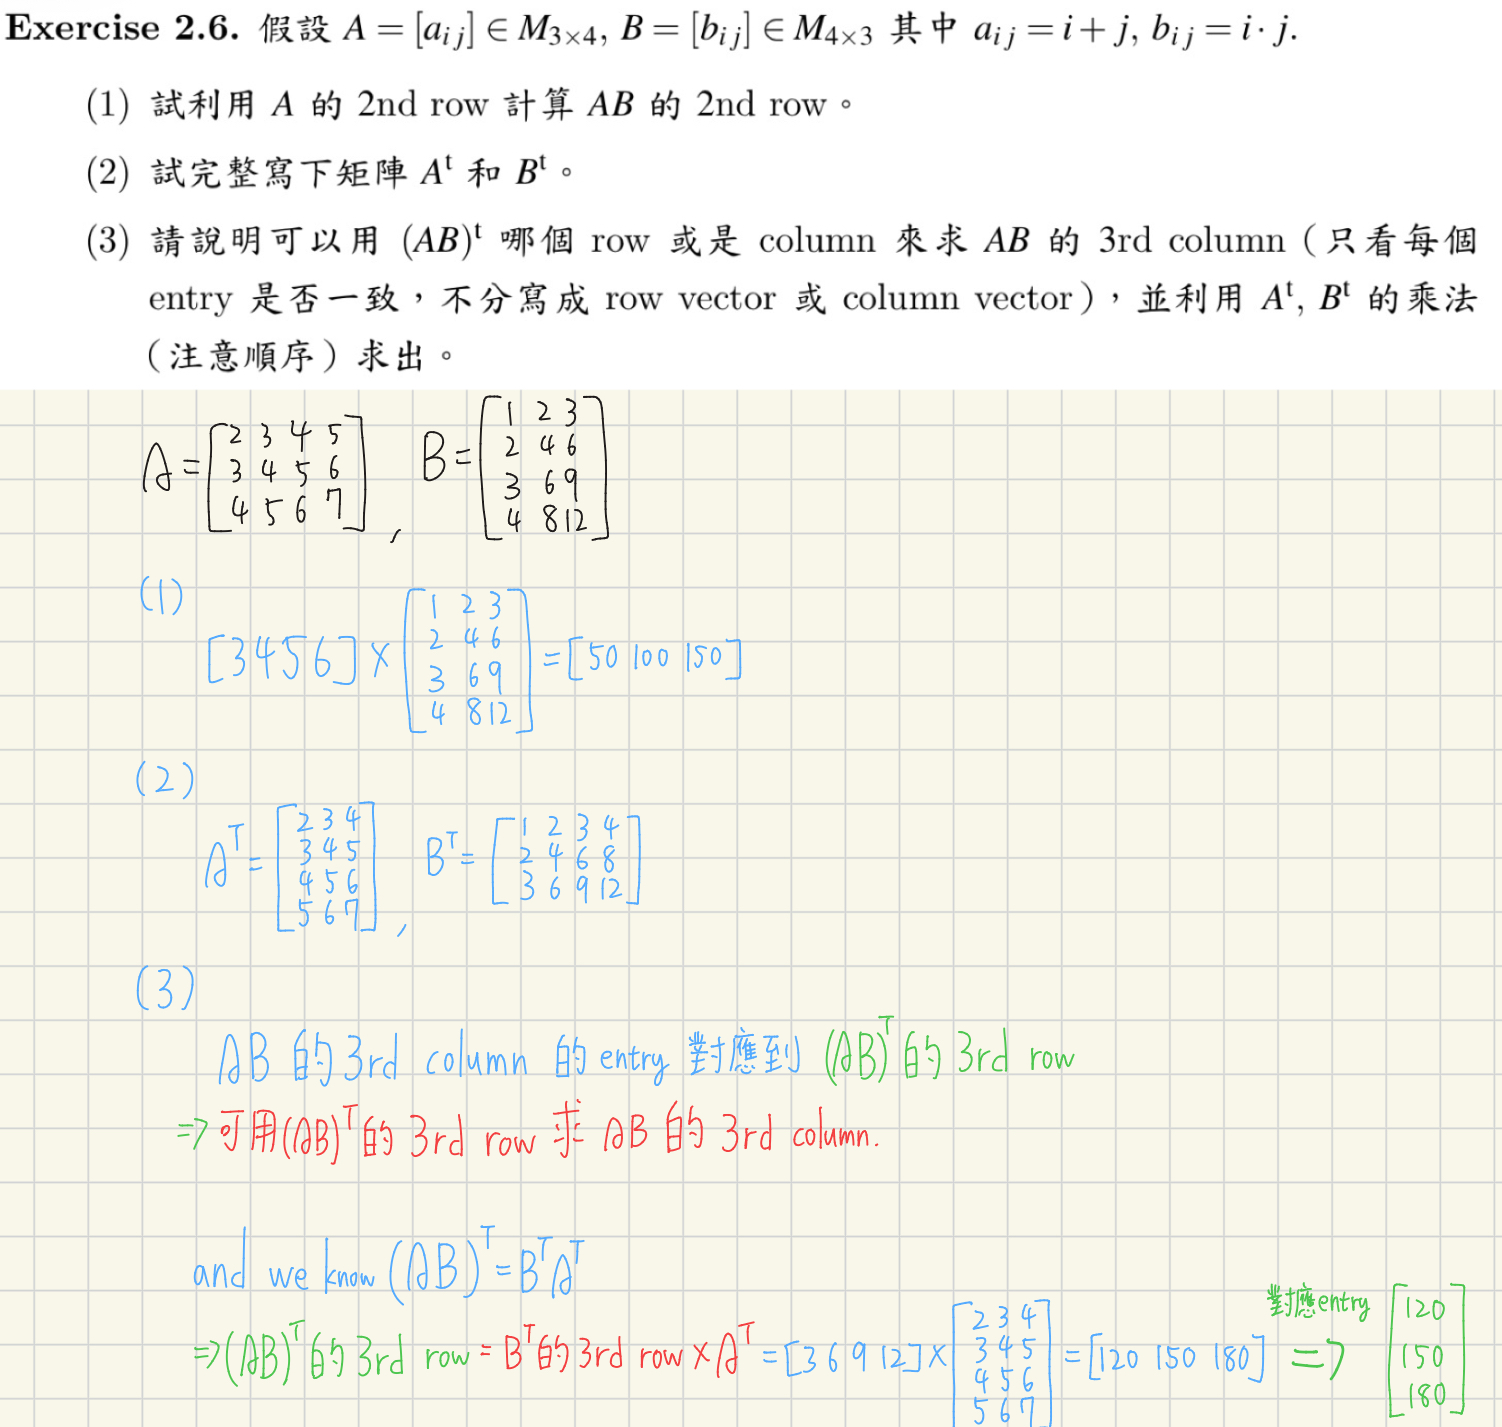 Exercise 2.6. 假設 A = [a_{ij}] ∈ M_{3×4}, B = [b_{ij}] ∈ M_{4×3} 其中 a_{ij} = i + j, b_{ij} = i · j.
(1) 試利用 A 的 2nd row 計算 AB 的 2nd row。
(2) 試完整寫下矩陣 A^t 和 B^t。
(3) 請說明可以用 (AB)^t 哪個 row 或是 column 來求 AB 的 3rd column（只看每個
entry 是否一致，不分寫成 row vector 或 column vector），並利用 A^t, B^t 的乘法
（注意順序）求出。
A = [2 3 4 5; 3 4 5 6; 4 5 6 7], B = [1 2 3; 2 4 6; 3 6 9; 4 8 12]
(1)
[3 4 5 6] × [1 2 3; 2 4 6; 3 6 9; 4 8 12] = [50 100 150]
(2)
A^T = [2 3 4; 3 4 5; 4 5 6; 5 6 7], B^T = [1 2 3 4; 2 4 6 8; 3 6 9 12]
(3)
AB 的 3rd column 的 entry 對應到 (AB)^T 的 3rd row
⇒ 可用 (AB)^T 的 3rd row 求 AB 的 3rd column.
and we know (AB)^T = B^T A^T
⇒ (AB)^T 的 3rd row = B^T 的 3rd row × A^T = [3 6 9 12] × [2 3 4; 3 4 5; 4 5 6; 5 6 7] = [120 150 180] 對應entry ⇒ [120; 150; 180]